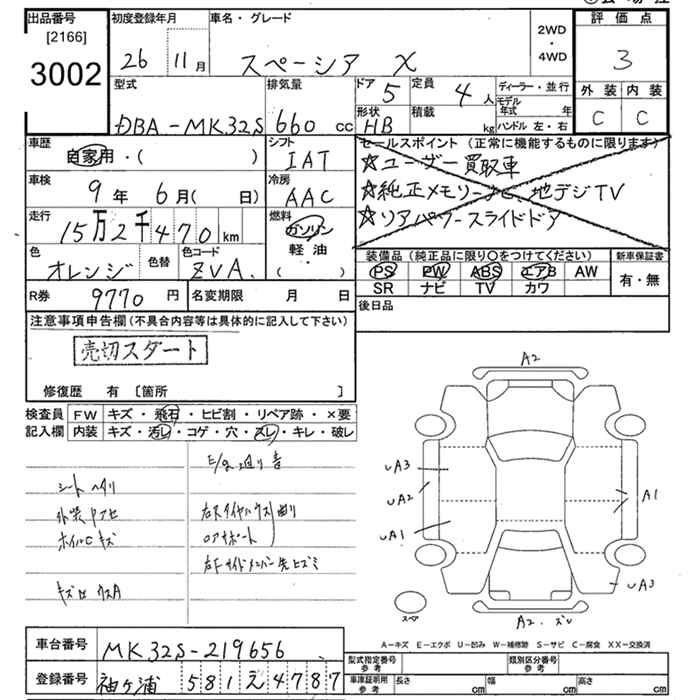 出品番号
[2166]
3002
初度登録年月
26 11月
車名・グレード
スペーシア X
2WD
・
4WD
評価点
3
外装 内装
C C
型式
DBA-MK32S
排気量
660 cc
ドア 5
定員 4人
形状 HB
積載 kg
ディーラー・並行
モデル年式 年
ハンドル 左・右
車歴
自家用・( )
シフト
IAT
セールスポイント (正常に機能するものに限ります)
☆ユーザー買取車
☆純正メモリーナビ、地デジTV
☆リアパワースライドドア
車検
9年 6月( 日)
冷房
AAC
走行
15万2千470km
燃料
ガソリン
軽・油
( )
色
オレンジ
色替
色コード
ZVA.
装備品 (純正品に限り〇をつけてください)
PS PW ABS エアB AW
SR ナビ TV カワ
新車保証書
有・無
R券 9770円
名変期限 月 日
後日品
注意事項申告欄 (不具合内容等は具体的に記入して下さい)
売切スタート
修復歴 有 〔箇所 〕
検査員記入欄
FW キズ・飛石・ヒビ割・リペア跡・×要
内装 キズ・汚レ・コゲ・穴・スレ・キレ・破レ
E/g廻り音
シートヘタリ
ホイルCキズ
A2
UA3
UA2
UA1
A1
UA3
スペア
A2.
A-キズ E-エクボ U-凹み W-補修跡 S-サビ C-腐食 XX-交換済
車台番号 MK32S-219656
登録番号 袖ヶ浦 581え4787
型式指定番号 参考
類別区分番号 参考
車庫証明用 参考
長さ cm
幅 cm
高さ cm